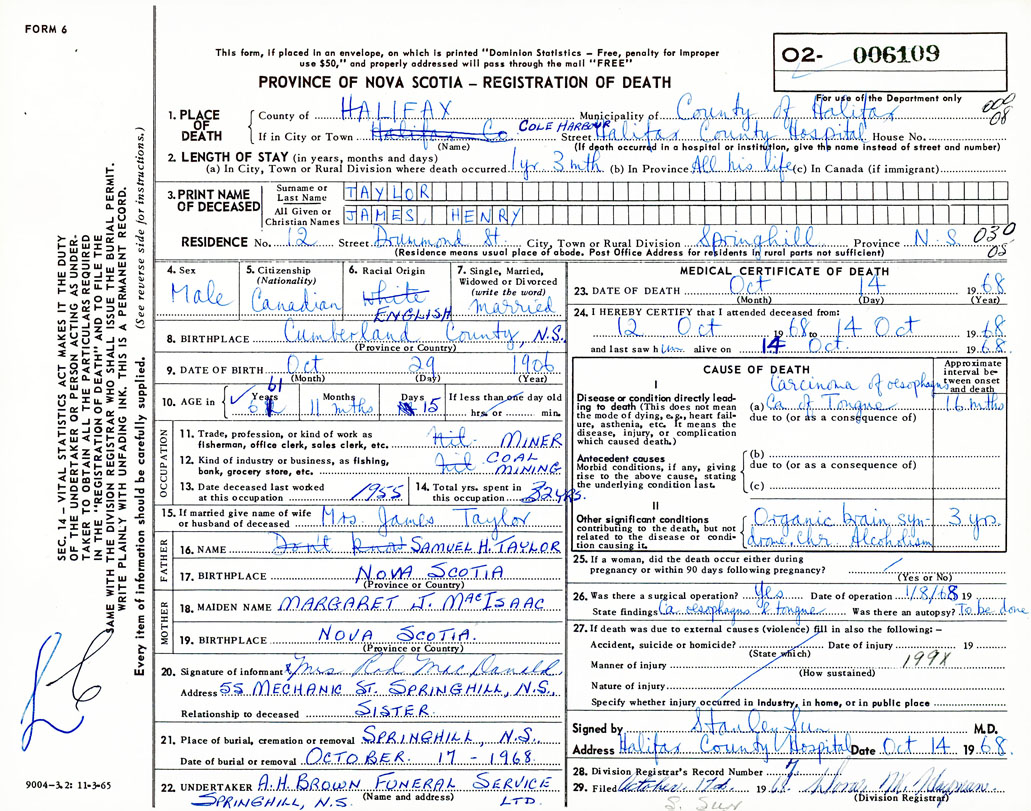 FORM 6
This form, if placed in an envelope, on which is printed "Dominion Statistics – Free, penalty for improper
use $50," and properly addressed will pass through the mail "FREE"
O2- 006109
PROVINCE OF NOVA SCOTIA – REGISTRATION OF DEATH
For use of the Department only
000
08
1. PLACE OF DEATH
County of HALIFAX Municipality of County of Halifax
If in City or Town Halifax Co COLE HARBOUR Street Halifax County Hospital House No.
(Name) (If death occurred in a hospital or institution, give the name instead of street and number)
2. LENGTH OF STAY (in years, months and days)
(a) In City, Town or Rural Division where death occurred 1 yr. 3 mth (b) In Province All his life (c) In Canada (if immigrant)
3. PRINT NAME OF DECEASED
Surname or Last Name TAYLOR
All Given or Christian Names JAMES HENRY
RESIDENCE No. 12 Street Drummond St. City, Town or Rural Division Springhill Province N.S. 030
05
(Residence means usual place of abode. Post Office Address for residents in rural parts not sufficient)
4. Sex Male
5. Citizenship (Nationality) Canadian
6. Racial Origin White ENGLISH
7. Single, Married, Widowed or Divorced (write the word) married
8. BIRTHPLACE Cumberland County, N.S.
(Province or Country)
9. DATE OF BIRTH Oct 29 1906
(Month) (Day) (Year)
10. AGE in Years 61 Months 11 Days 15 If less than one day old hrs. or min.
OCCUPATION
11. Trade, profession, or kind of work as fisherman, office clerk, sales clerk, etc. Nil MINER
12. Kind of industry or business, as fishing, bank, grocery store, etc. Nil COAL MINING
13. Date deceased last worked at this occupation 1955
14. Total yrs. spent in this occupation 32 YRS.
15. If married give name of wife or husband of deceased Mrs. James Taylor
FATHER
16. NAME Don't know SAMUEL H. TAYLOR
17. BIRTHPLACE NOVA SCOTIA
(Province or Country)
MOTHER
18. MAIDEN NAME MARGARET J. MacISAAC
19. BIRTHPLACE NOVA SCOTIA.
(Province or Country)
20. Signature of informant Mrs Rod MacDonald
Address 55 MECHANIC ST. SPRINGHILL, N.S.
Relationship to deceased SISTER.
21. Place of burial, cremation or removal SPRINGHILL, N.S.
Date of burial or removal OCTOBER 17 - 1968.
22. UNDERTAKER A.H. BROWN FUNERAL SERVICE LTD.
SPRINGHILL, N.S. (Name and address)
MEDICAL CERTIFICATE OF DEATH
23. DATE OF DEATH Oct 14 1968
(Month) (Day) (Year)
24. I HEREBY CERTIFY that I attended deceased from:
12 Oct 1968 to 14 Oct 1968
and last saw him alive on 14 Oct. 1968.
CAUSE OF DEATH
Approximate interval between onset and death
I
Disease or condition directly leading to death (This does not mean the mode of dying, e.g., heart failure, asthenia, etc. It means the disease, injury, or complication which caused death.)
Carcinoma of oesophagus
(a) Ca of Tongue 16 mths
due to (or as a consequence of)
Antecedent causes
Morbid conditions, if any, giving rise to the above cause, stating the underlying condition last.
(b)
due to (or as a consequence of)
(c)
II
Other significant conditions
contributing to the death, but not related to the disease or condition causing it.
Organic brain syn-
drome. Chr. Alcoholism 3 yrs
25. If a woman, did the death occur either during
pregnancy or within 90 days following pregnancy?
(Yes or No)
26. Was there a surgical operation? Yes Date of operation 1/8/68 19
State findings Ca oesophagus & tongue Was there an autopsy? To be done
27. If death was due to external causes (violence) fill in also the following: –
Accident, suicide or homicide? Date of injury 19
(State which) 199X
Manner of injury
(How sustained)
Nature of injury
Specify whether injury occurred in Industry, in home, or in public place
Signed by Stanley Sun M.D.
Address Halifax County Hospital Date Oct 14 1968.
28. Division Registrar's Record Number 7
29. Filed October 17th 1968
(Division Registrar)
S. Sun
SEC. 14 – VITAL STATISTICS ACT MAKES IT THE DUTY
OF THE UNDERTAKER OR PERSON ACTING AS UNDER-
TAKER TO OBTAIN ALL THE PARTICULARS REQUIRED
IN THE "REGISTRATION OF DEATH" AND TO FILE THE
SAME WITH THE DIVISION REGISTRAR WHO SHALL ISSUE THE BURIAL PERMIT.
WRITE PLAINLY WITH UNFADING INK. THIS IS A PERMANENT RECORD.
Every item of information should be carefully supplied. (See reverse side for instructions.)
9004-3.2: 11-3-65